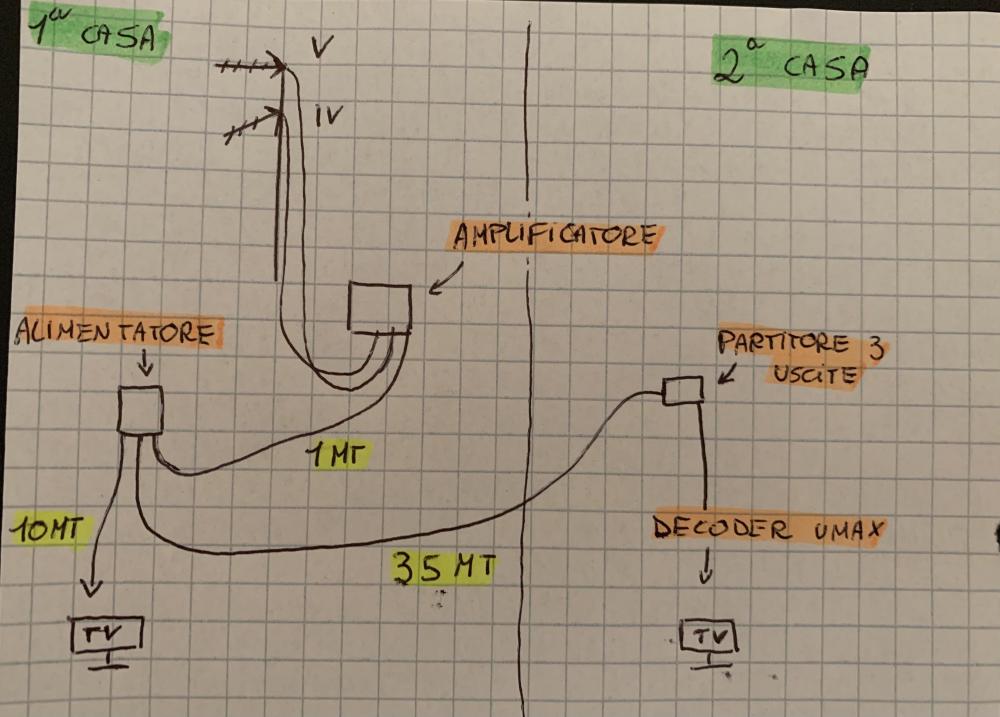 1ª CASA
2ª CASA
V
IV
AMPLIFICATORE
ALIMENTATORE
PARTITORE 3
USCITE
1 MT
10 MT
35 MT
DECODER UMAX
TV
TV